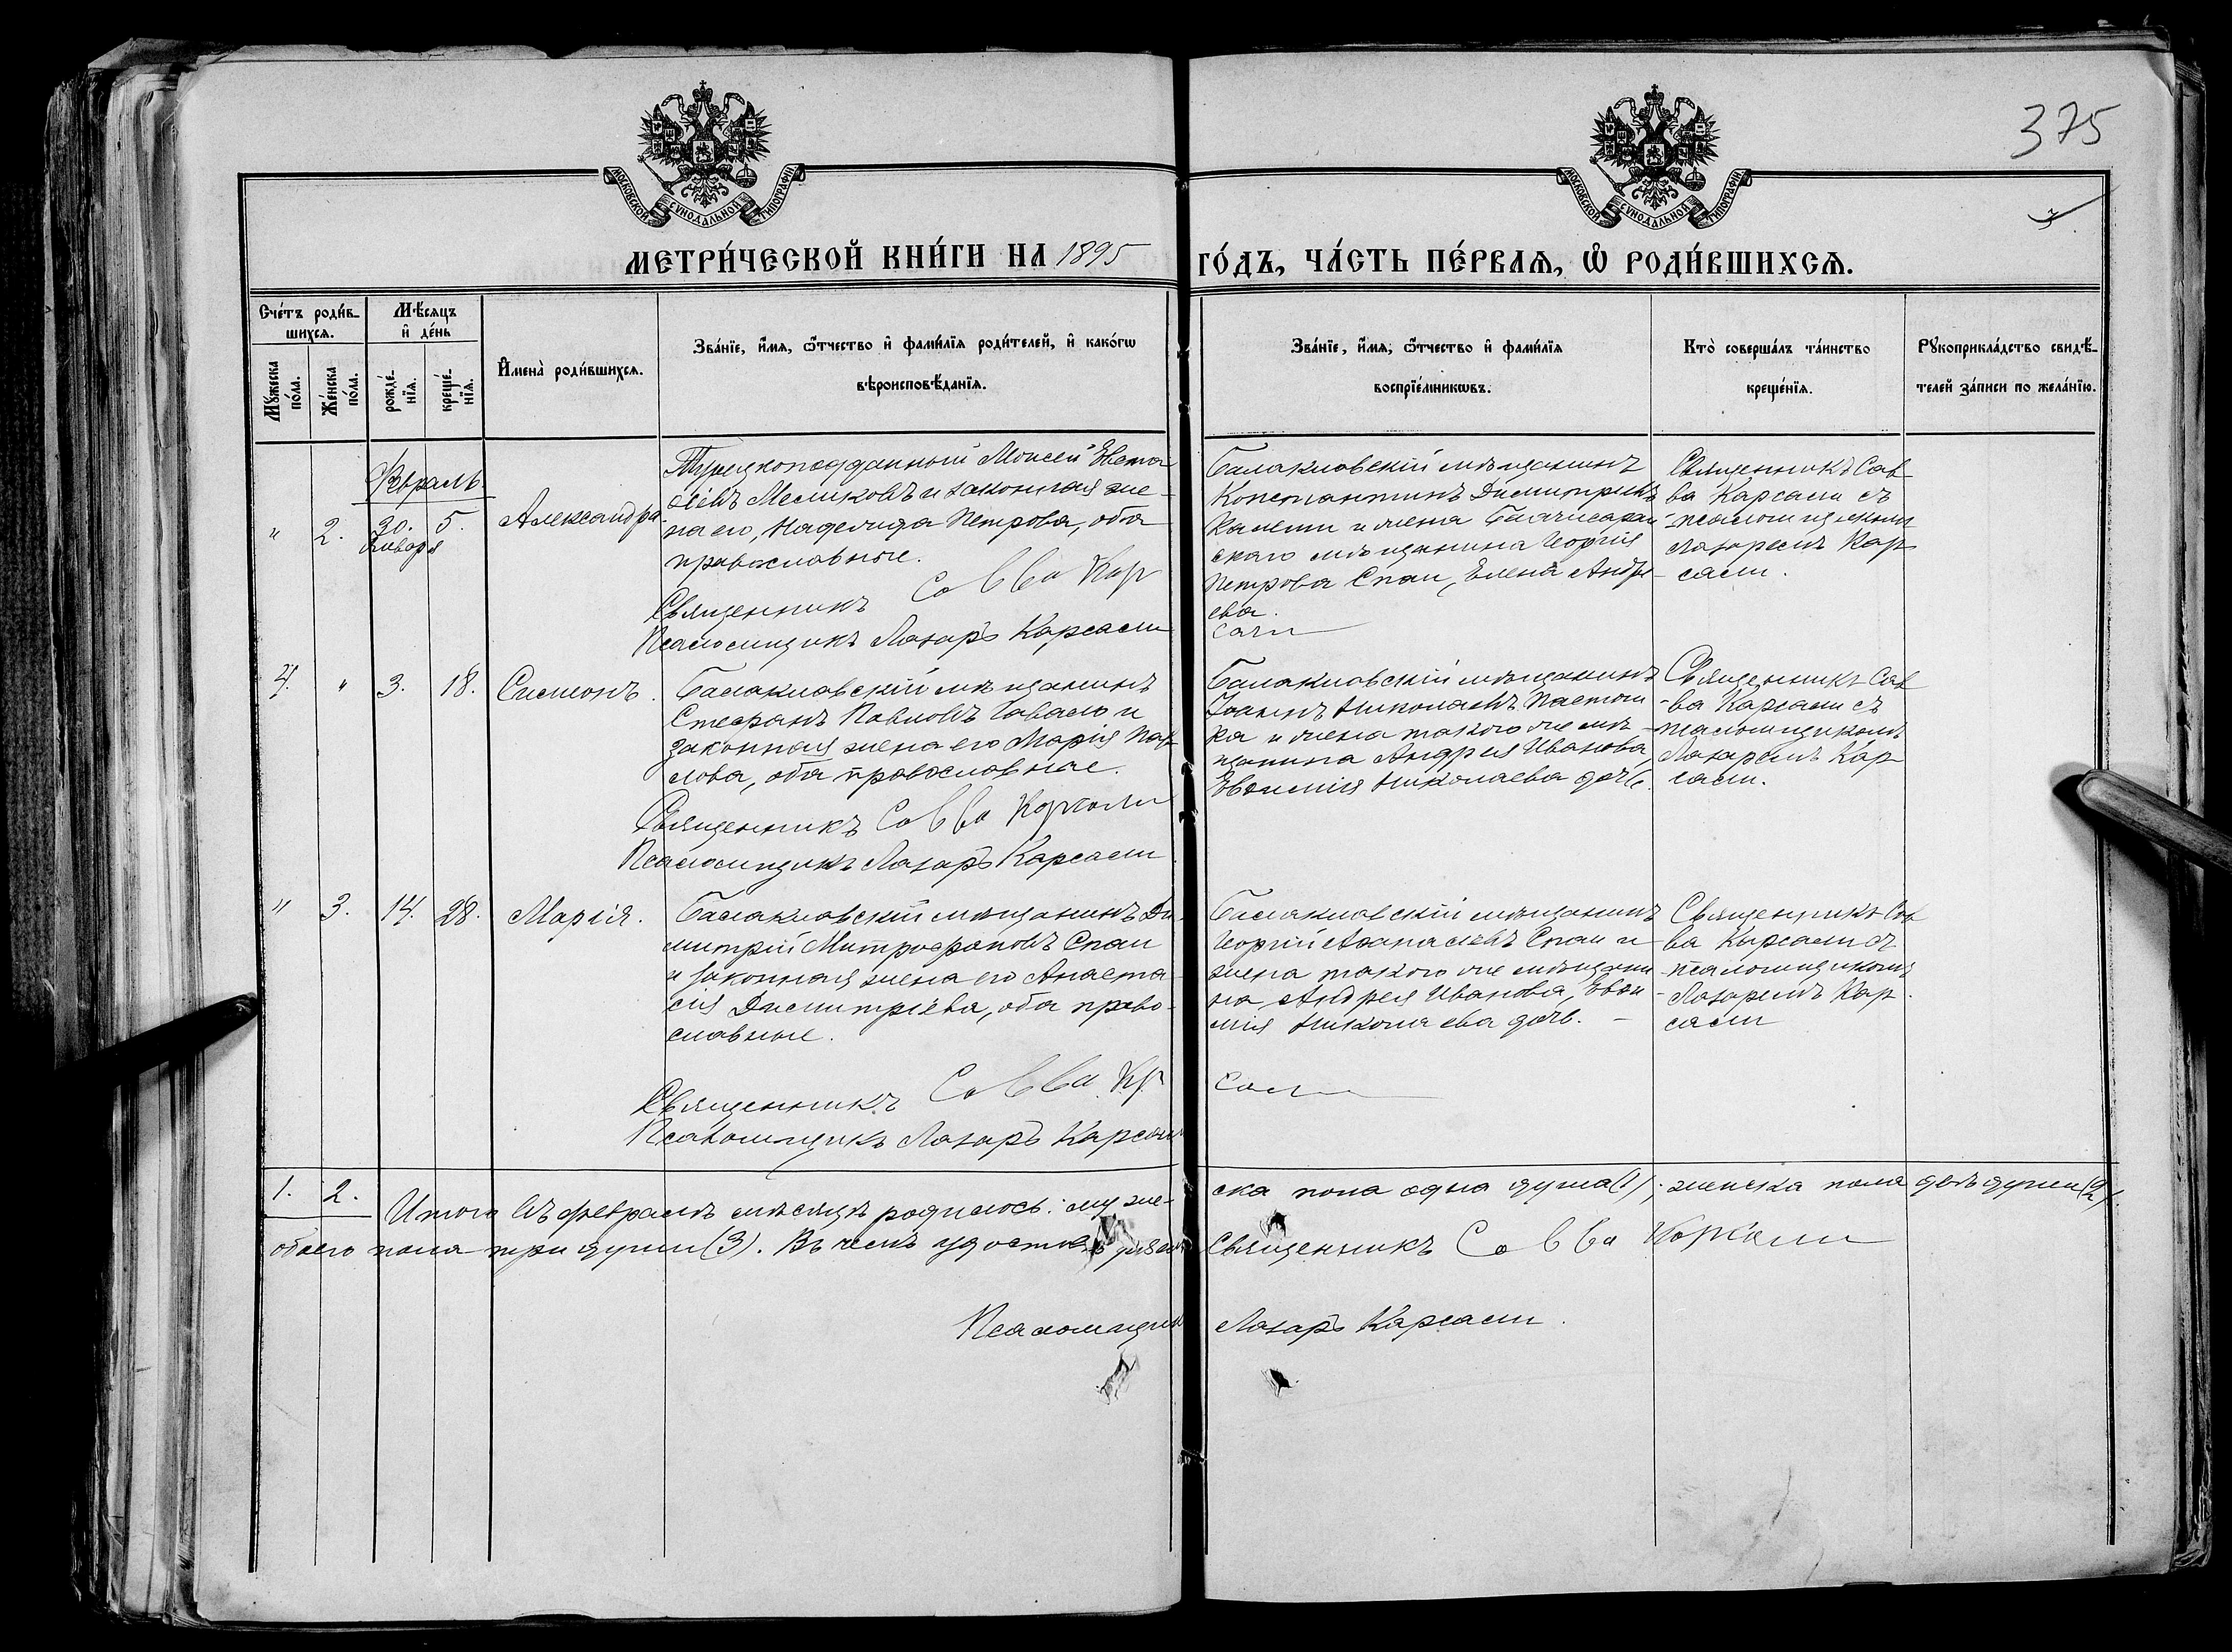 375
МОСКОВСКОЙ СУНОДАЛЬНОЙ ТИПОГРАФІИ
МОСКОВСКОЙ СУНОДАЛЬНОЙ ТИПОГРАФІИ
МЕТРИ́ЧЕСКОЙ КНИ́ГИ НА 1895 ГО́ДЪ, ЧА́СТЬ ПЕ́РВАѦ, Ѡ҆ РОДИ́ВШИХСѦ.
Сче́тъ роди́в-
шихсѧ.
Мꙋ́жеска
по́ла.
Же́нска
по́ла.
Мѣ́сѧцъ
и҆ де́нь
рожде́-
нїѧ.
креще́-
нїѧ.
И҆мена̀ роди́вшихсѧ.
Зва́нїе, и҆́мѧ, ѻ҆́тчество и҆ фами́лїѧ роди́телей, и҆ како́гѡ
вѣроисповѣ́данїѧ.
Зва́нїе, и҆́мѧ, ѻ҆́тчество и҆ фами́лїѧ
воспрїе́мникѡвъ.
Кто̀ соверша́лъ та́инство
креще́нїѧ.
Рꙋкоприкла́дство свидѣ́-
телей за́писи по жела́нїю.
Февраль
" 2. 30. Января 5. Александра
Турецкоподданный Моисей Евста
ѳіевъ Меликовъ и законная же-
на его, Надежда Петрова, оба
православные.
Священникъ Савва Кар
Псаломщикъ Лазарь Карсами
Балаклавскій мѣщанинъ
Константинъ Димитріевъ
и жена Бахчисарай-
скаго мѣщанина Георгія
Петрова Спаи, Елена Андре-
ева.
сами
Священникъ Сав
ва Карсами съ
псаломщикомъ
Лазаремъ Кар
сами.
4. " 3. 18. Симеонъ.
Балаклавскій мѣщанинъ
Стефанъ Павловъ Гавало и
законная жена его Марія Пав
лова, оба православные.
Священникъ Савва Карсами
Псаломщикъ Лазарь Карсами
Балаклавскій мѣщанинъ
Іоаннъ Николаевъ
ка и жена такого же мѣ-
щанина Андрея Иванова,
Евѳимія Николаева дочь.
Священникъ Сав
-ва Карсами съ
псаломщикомъ
Лазаремъ Кар
сами.
" 3. 14. 28. Марія.
Балаклавскій мѣщанинъ Ди-
митрій Митрофановъ Спаи
и законная жена его Анаста-
сія Димитріева, оба право-
славные.
Священникъ Савва Кр.
Псаломщикъ Лазарь Карсами
Балаклавскій мѣщанинъ
Георгій Аѳанасіевъ Спаи и
жена такого же мѣщани
на Андрея Иванова, Евѳи-
мія Николаева дочь. -
сами
Священникъ Сав
ва Карсами съ
псаломщикомъ
Лазаремъ Кар
сами
1. 2. Итого въ февралѣ мѣсяцѣ родилось: муже- ска пола одна душа (1); женска пола двѣ души (2),
обоего пола три души (3). Въ чемъ удостовѣряемъ Священникъ Савва Карсами
Псаломщикъ Лазарь Карсами.